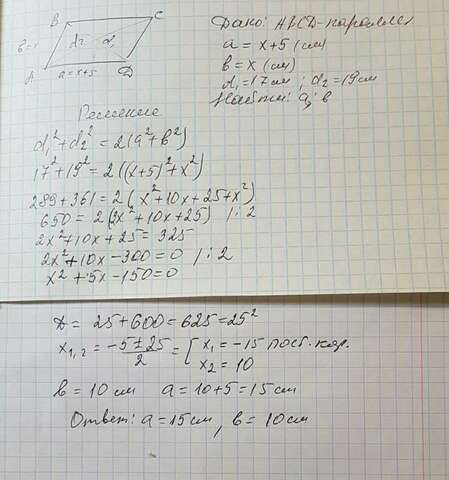 B C
d₂ d₁
A a=x+5 D
Дано: ABCD-параллел
a = x+5 (см)
b = x (см)
d₁=17см; d₂=19см
Найти: a; b
Решение
d₁²+d₂²=2(a²+b²)
17²+19²=2((x+5)²+x²)
289+361=2(x²+10x+25+x²)
650=2(2x²+10x+25) |:2
2x²+10x+25=325
2x²+10x-300=0 |:2
x²+5x-150=0
D= 25+600=625=25²
x₁,₂= (-5±25)/2 = [x₁=-15 пост. кор.
x₂=10
b=10см a=10+5=15см
Ответ: a=15см, b=10см